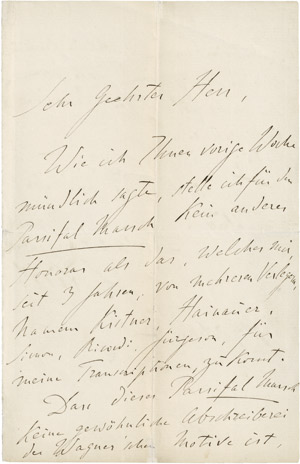 Sehr Geehrter Herr,
Wie ich Ihnen vorige Woche
mündlich sagte, stelle ich für den
Parsifal Marsch kein anderes
Honorar als das, Welches mir
seit 3 Jahren, von mehreren Verlegern,
Namens Kistner, Hainauer,
Simon, Ricordi, Jürgenson, für
meine Transcriptionen, zu kömt.
Dass dieses Parsifal Marsch
keine gewöhnliche Abschreiberei
der Wagner'schen Motive ist,